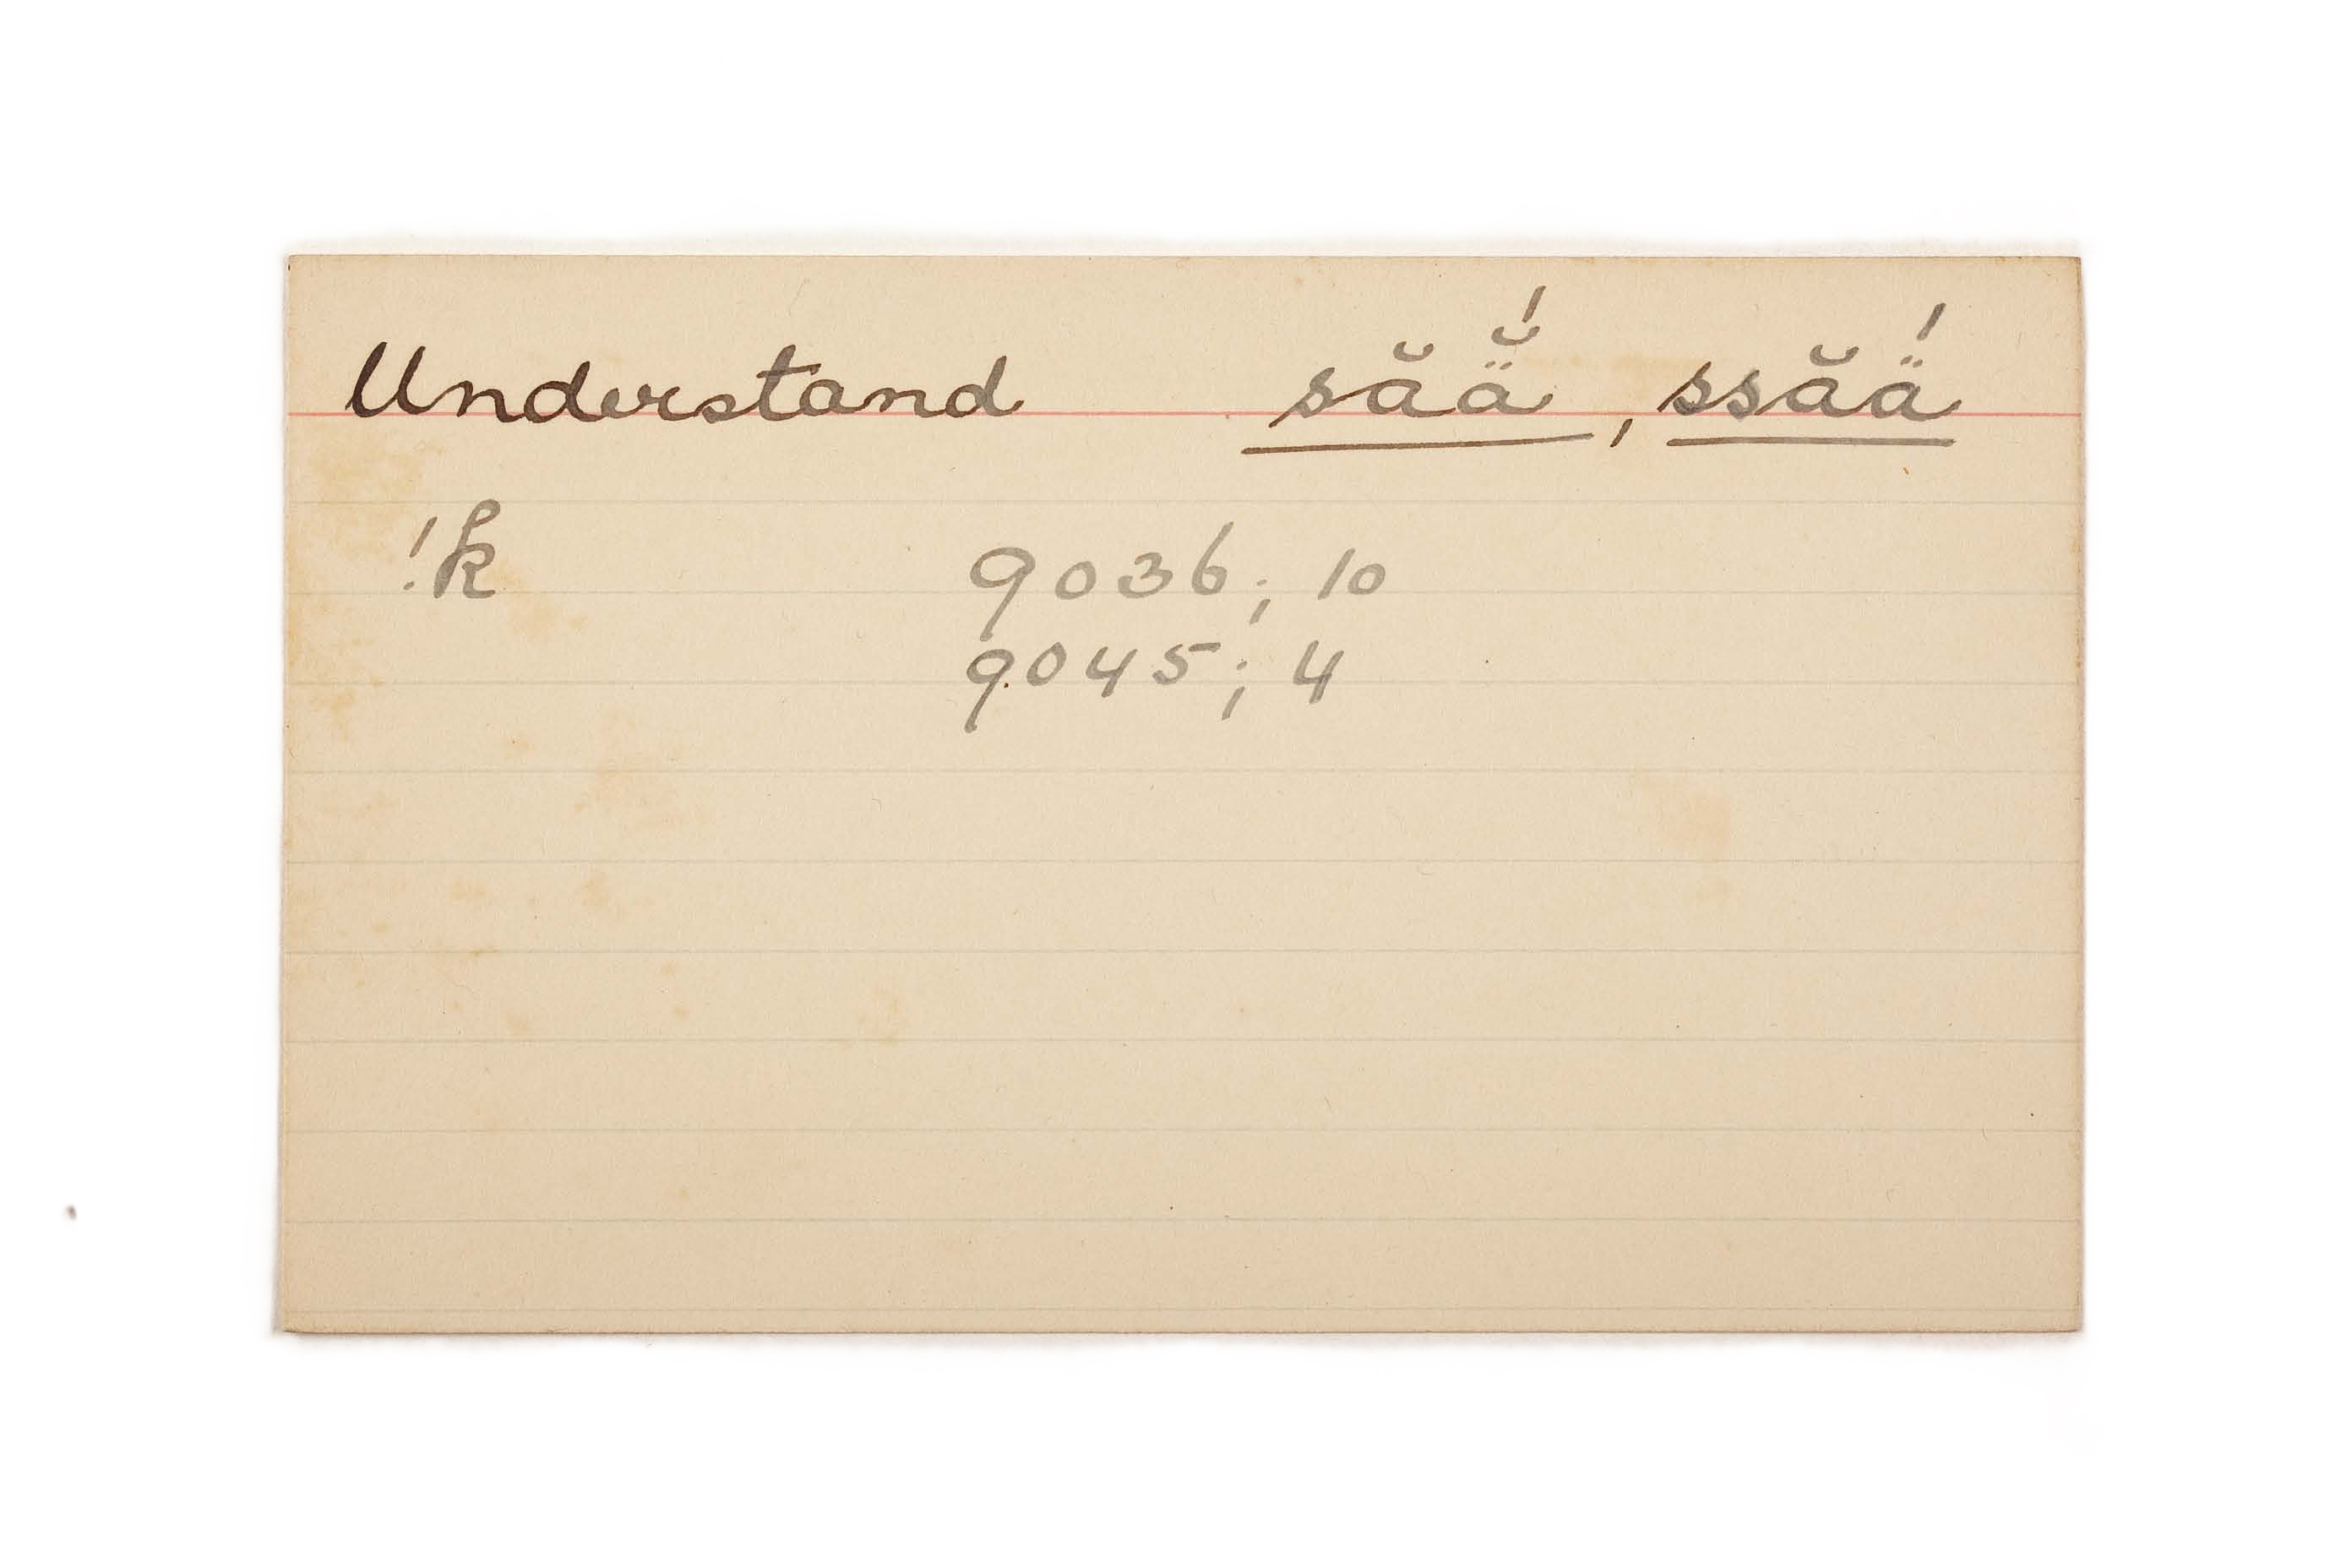 Understand să̤ä̆́, ssăä́
!k 9036; 10
9045; 4